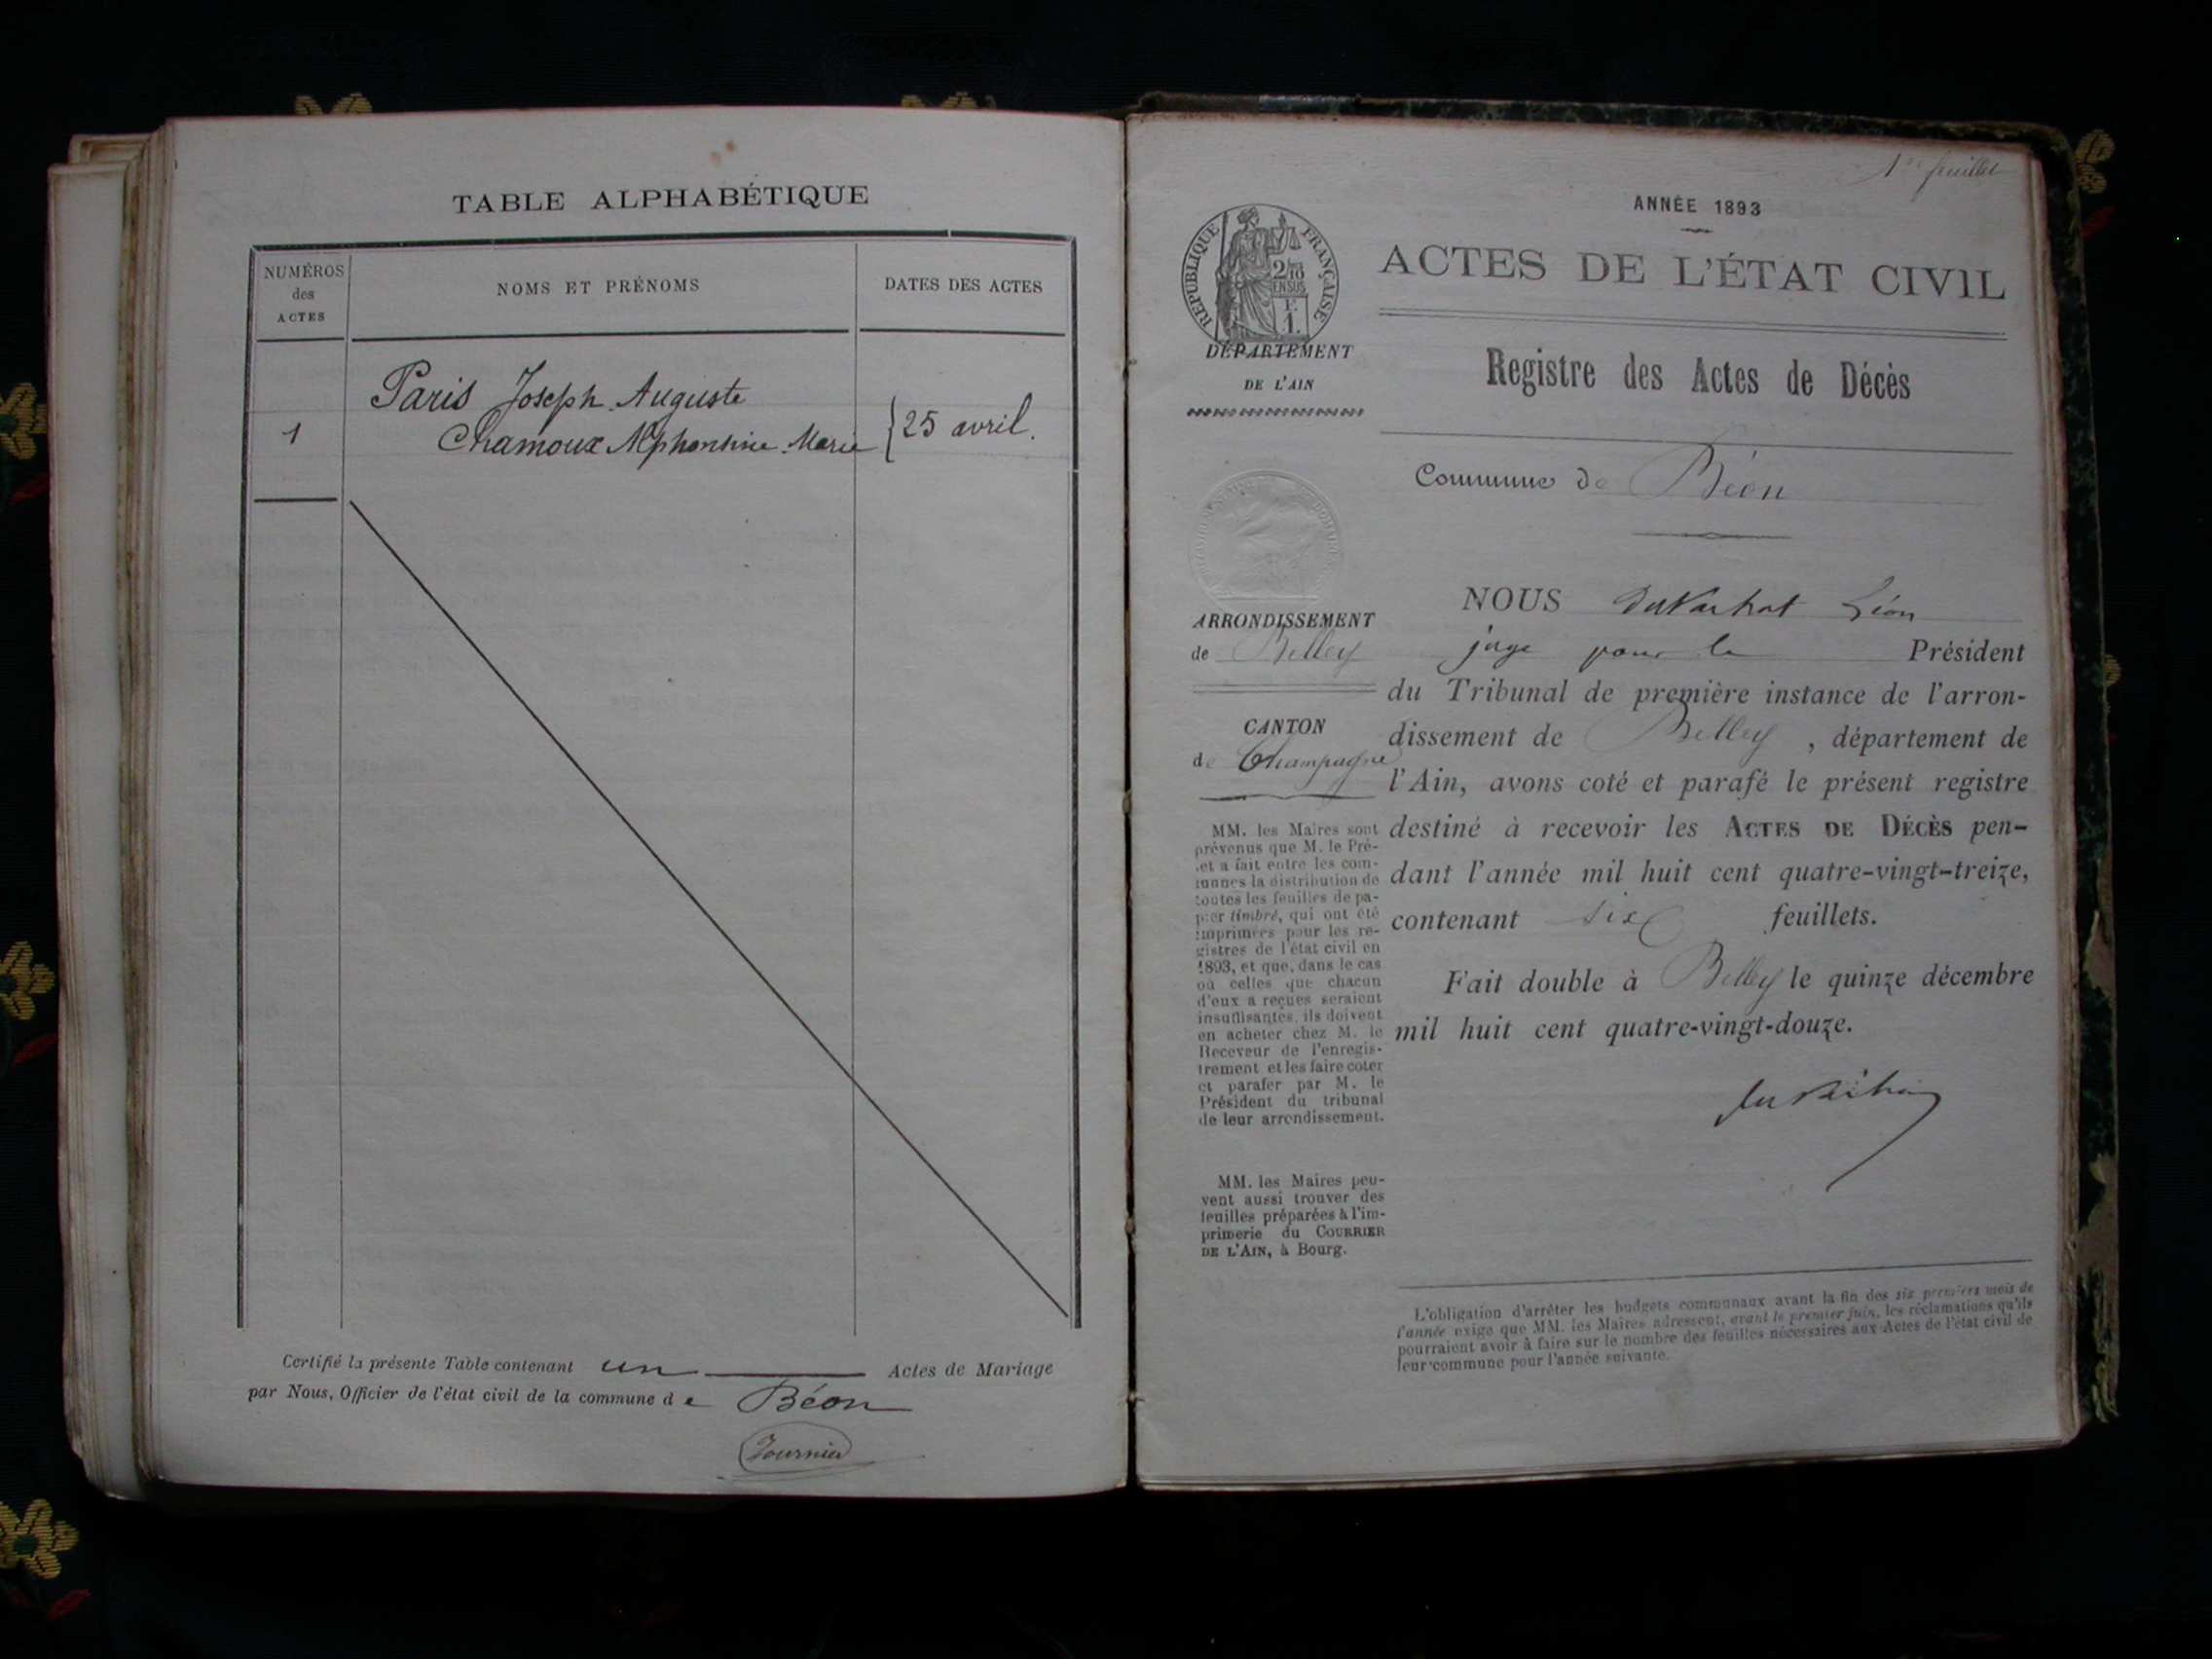 TABLE ALPHABÉTIQUE
NUMÉROS
des
ACTES
NOMS ET PRÉNOMS
DATES DES ACTES
Paris Joseph Auguste
1
Chamoux Alphonsine Marie
25 avril.
Certifié la présente Table contenant un Actes de Mariage
par Nous, Officier de l'état civil de la commune de Béon
Fournier
1er feuillet
ANNÉE 1893
RÉPUBLIQUE FRANÇAISE
2/10
EN SUS
F.
1.
ACTES DE L'ÉTAT CIVIL
DÉPARTEMENT
DE L'AIN
Registre des Actes de Décès
Commune de Béon
ARRONDISSEMENT
de Belley
CANTON
de Champagne
MM. les Maires sont
prévenus que M. le Pré-
et a fait entre les com-
munes la distribution de
toutes les feuilles de pa-
pier timbré, qui ont été
imprimées pour les re-
gistres de l'état civil en
1893, et que, dans le cas
où celles que chacun
d'eux a reçues seraient
insuffisantes, ils doivent
en acheter chez M. le
Receveur de l'enregis-
trement et les faire coter
et parafer par M. le
Président du tribunal
de leur arrondissement.
MM. les Maires peu-
vent aussi trouver des
feuilles préparées à l'im-
primerie du COURRIER
DE L'AIN, à Bourg.
NOUS Léon
juge pour le Président
du Tribunal de première instance de l'arron-
dissement de Belley, département de
l'Ain, avons coté et parafé le présent registre
destiné à recevoir les ACTES DE DÉCÈS pen-
dant l'année mil huit cent quatre-vingt-treize,
contenant six feuillets.
Fait double à Belley le quinze décembre
mil huit cent quatre-vingt-douze.
L'obligation d'arrêter les budgets communaux avant la fin des six premiers mois de
l'année exige que MM. les Maires adressent, avant le premier juin, les réclamations qu'ils
pourraient avoir à faire sur le nombre des feuilles nécessaires aux Actes de l'état civil de
leur commune pour l'année suivante.